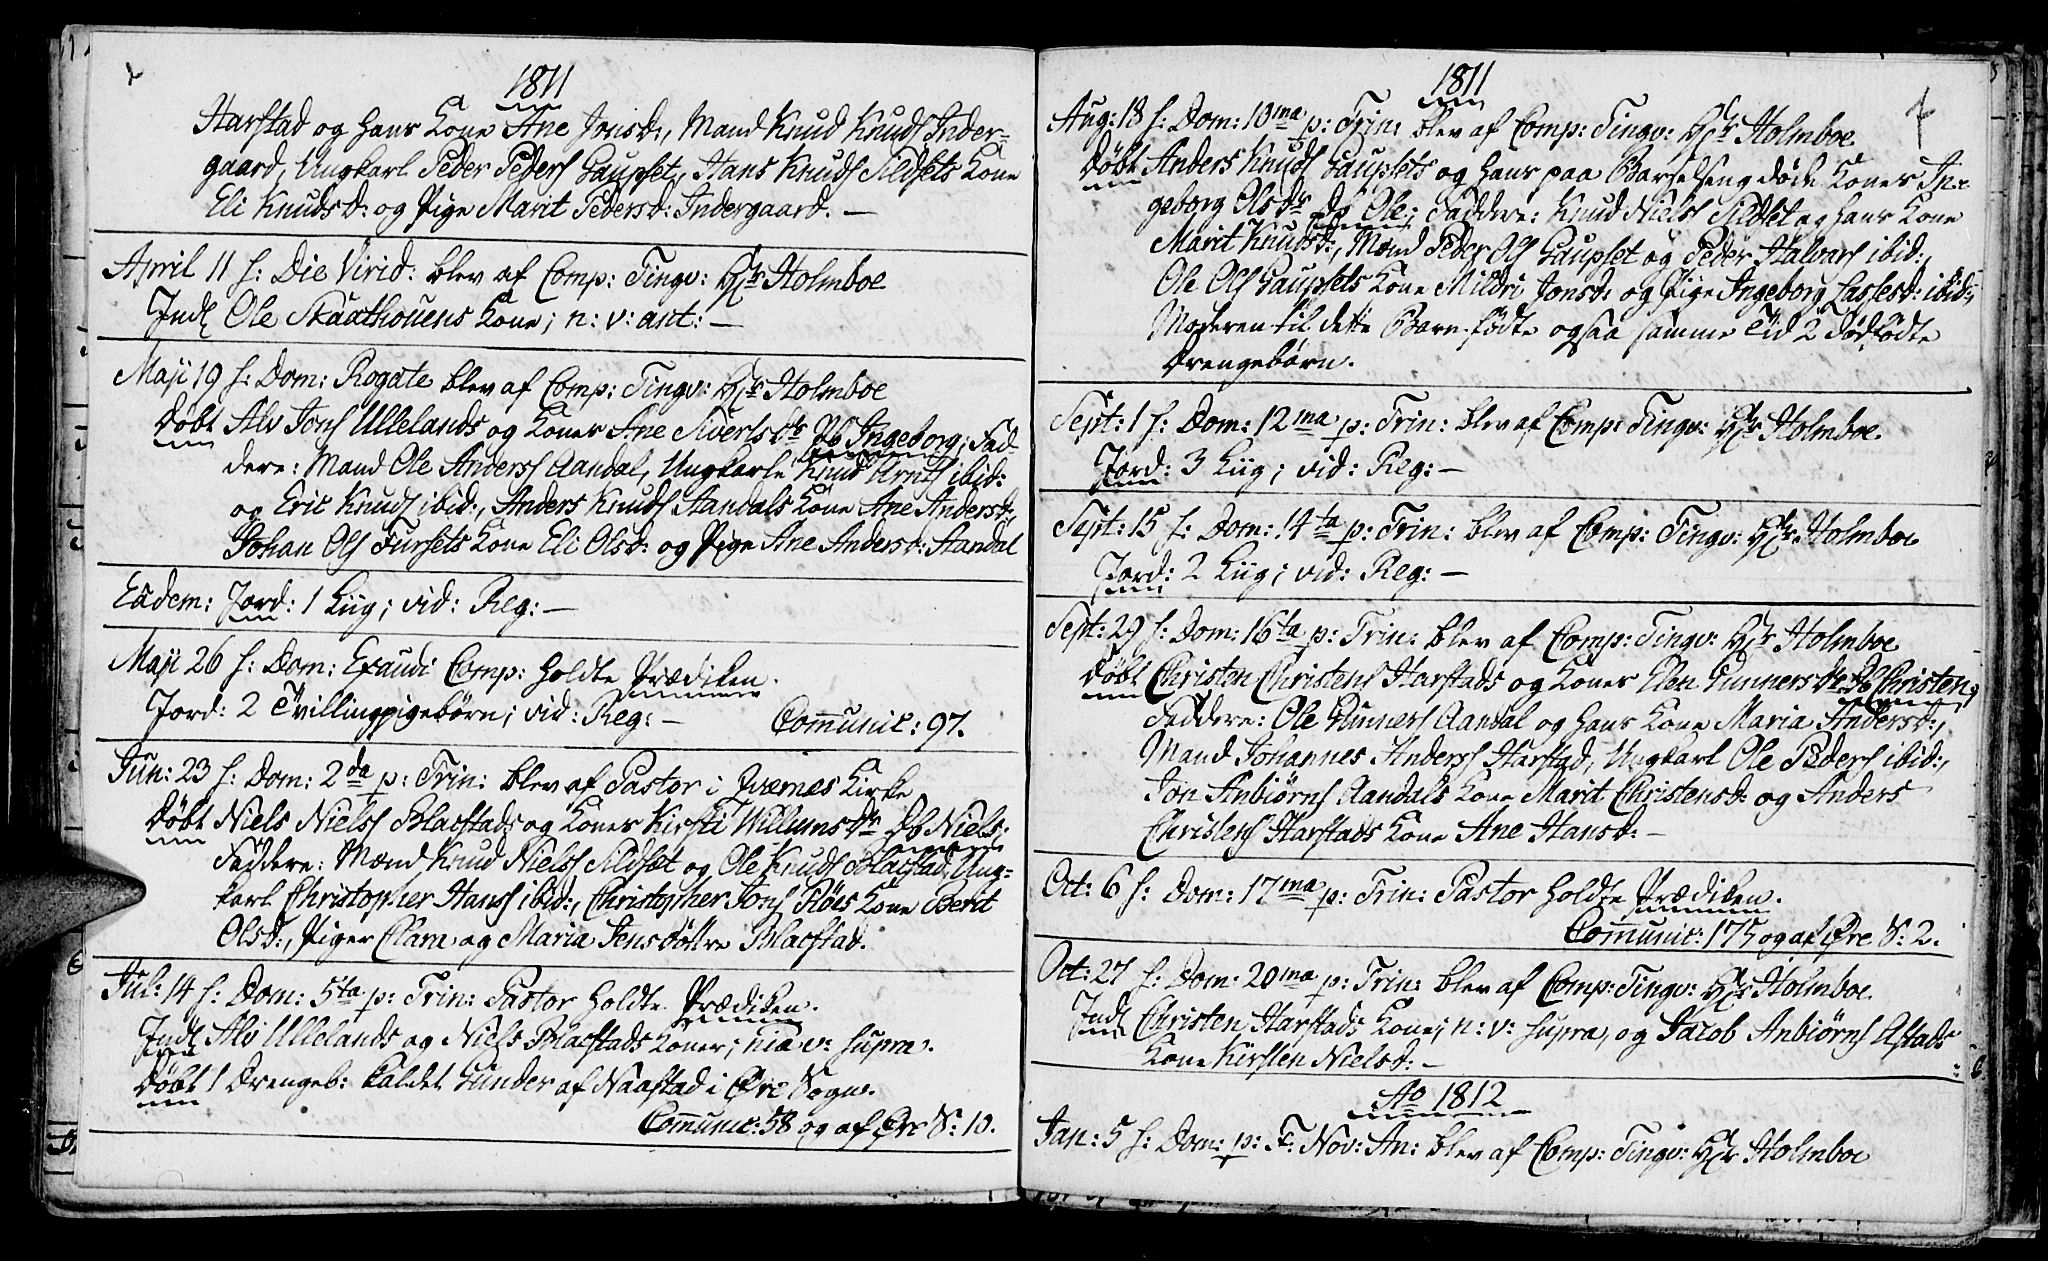 1811
Harstad og hans Kone Ane Jonsd:, Mand Knud Knuds Inder-
gaard, Ungkarl Peder Peders Gaupset, Hans Knuds Sildsets Kone
Eli Knudsd: og Pige Marit Pedersd: Indergaard. —
April 11 s: Die Virid: blev af Comp: Tingv: Hr Holmboe
Indl Ole Skaathouens Kone; n: v: ant: —
Maji 19 s: Dom: Rogate blev af Comp: Tingv: Hr Holmboe
Døbt Alv Jons Ullelands og Kones Ane Siverts Dr Db Ingeborg; Fad-
dere: Mand Ole Anders Aandal, Ungkarle Knud Arnts ibid:
og Eric Knuds ibid:, Anders Knuds Aandals Kone Ane Andersd:,
Johan Ols Fursets Kone Eli Olsd: og Pige Ane Andersd: Aandal
Eadem: Jord: 1 Liig; vid: Reg: —
Maji 26 s: Dom: Exaudi Comp: holdte Prædiken.
Jord: 2 Tvillingpigebørn; vid: Reg: — Communic: 97.
Jun: 23 s: Dom: 2da p: Trin: blev af Pastor i Qværnes Kirke
Døbt Niels Niels Blacstads og Kones Kirsti Willums Dr Db Niels;
Faddere: Mænd Knud Niels Sildset og Ole Knuds Blacstad, Ung-
karl Christopher Hans ibid:, Christopher Jons Fløis Kone Berit
Olsd:, Piger Clara og Maria Jensdøttre Blacstad.
Jul: 14 s: Dom: 5ta p: Trin: Pastor holdte Prædiken.
Indl Alv Ullelands og Niels Blacstads Koner; nia v: supra.
Døbt 1 Drengeb: kaldet Gunder af Naastad i Øre Sogn.
Communic: 58 og af Øre S: 10.
1811
Aug: 18 s: Dom: 10ma p: Trin: blev af Comp: Tingv: Hr Holmboe
Døbt Anders Knuds Gaupsets og hans paa Barselseng døde Kones In-
geborg Ols Dr Db Ole; Faddere: Knud Niels Sildset og hans Kone
Marit Knudsd:, Mænd Peder Ols Gaupset og Peder Halvors ibid:,
Ole Ols Gaupsets Kone Mildri Jonsd: og Pige Ingeborg Lassesd: ibid:,
Moderen til dette Barn fødte ogsaa samme Tid 2 dødfødte
Drengebørn.
Sept: 1 s: Dom: 12ma p: Trin: blev af Comp: Tingv: Hr Holmboe.
Jord: 3 Liig; vid: Reg: —
Sept: 15 s: Dom: 14ta p: Trin: blev af Comp: Tingv: Hr Holmboe
Jord: 2 Liig; vid: Reg: —
Sept: 29 s: Dom: 16ta p: Trin: blev af Comp: Tingv: Hr Holmboe
Døbt Christen Christens Harstads og Kones Elen Gunners Dr Db Christen;
Faddere: Ole Gunners Aandal og hans Kone Maria Andersd:,
Mand Johannes Anders Harstad, Ungkarl Ole Peders ibid:,
Jon Anbiørns Aandals Kone Marit Christensd: og Anders
Christens Harstads Kone Ane Hansd: —
Oct: 6 s: Dom: 17ma p: Trin: Pastor holdte Prædiken.
Communic: 175 og af Øre S: 2.
Oct: 27 s: Dom: 20ma p: Trin: blev af Comp: Tingv: Hr Holmboe
Indl Christen Harstads Kone; n: v: supra, og Jacob Anbiørns Astads
Kone Kirsten Nielsd: —
Ao 1812
Jan: 5 s: Dom: p: F: Nov: An: blev af Comp: Tingv: Hr Holmboe